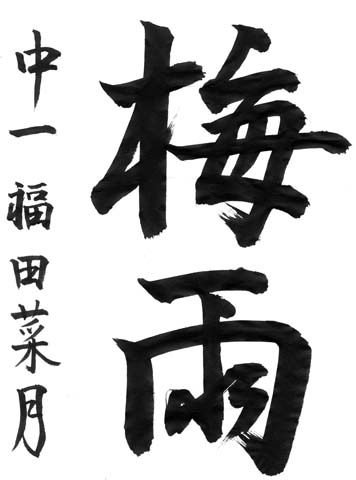 梅雨
中一 福田菜月